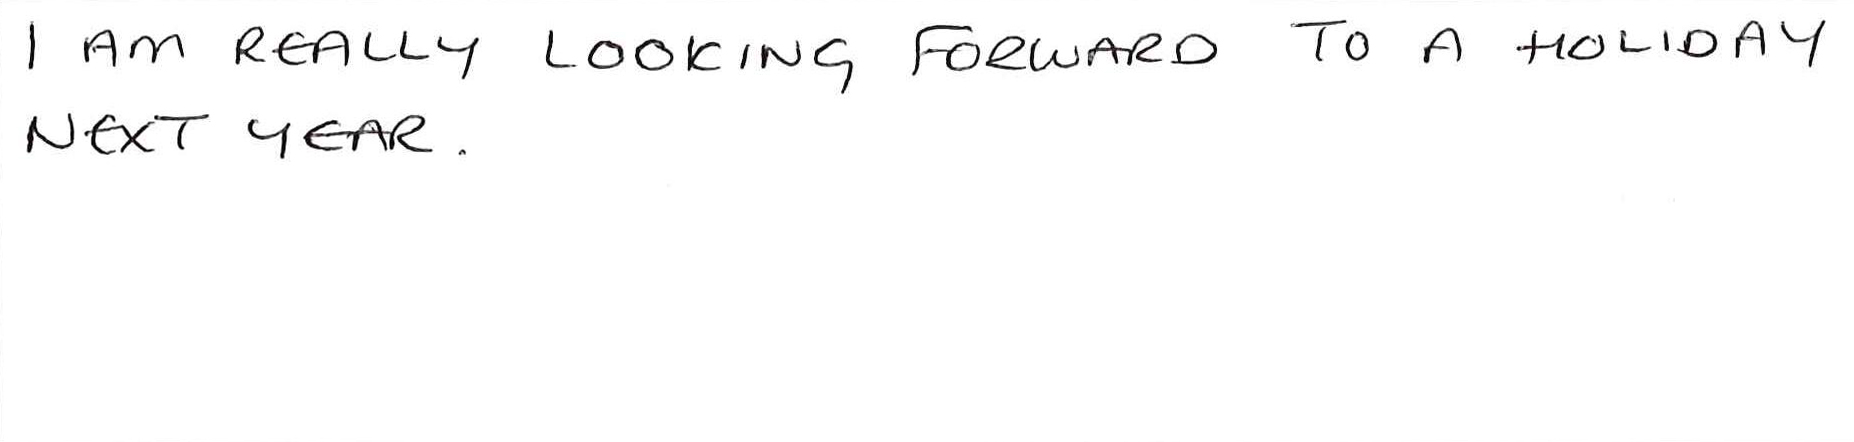 I AM REALLY LOOKING FORWARD TO A HOLIDAY
NEXT YEAR.